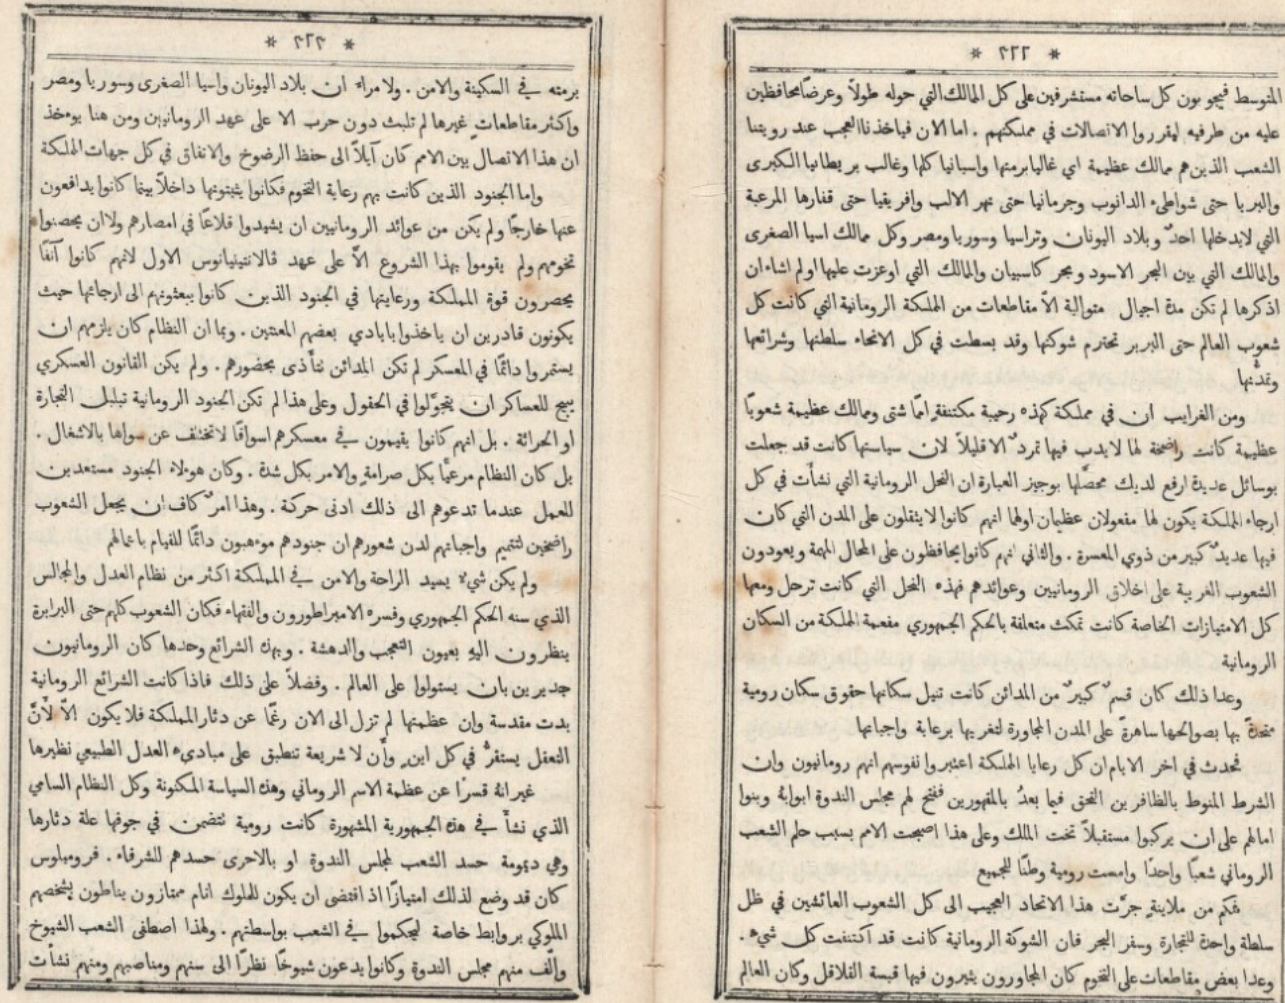 * ٢٦٦ *
المتوسط فيحوبون كل ساحاته مستشرفين على كل الممالك التي حوله طولاً وعرضًا محافظين
عليه من طرفيه ليقرروا الاتصالات في مملكتهم . اما الان فياخذنا العجب عند رويتنا
الشعب الذين هم ممالك عظيمة اي غاليا برمتها واسبانيا كلها وغالب بريطانيا الكبرى
والبريا حتى شواطىء الدانوب وجرمانيا حتى نهر الالب وافريقيا حتى قفارها المرعبة
التي لايدخلها احدٌ وبلاد اليونان وتراسيا وسوريا ومصر وكل ممالك اسيا الصغرى
والممالك التي بين البحر الاسود وبحر كاسبيان والممالك التي اوعزت عليها اولم اشاء ان
اذكرها لم تكن مدة اجيال متوالية الاّ مقاطعات من المملكة الرومانية التي كانت كل
شعوب العالم حتى البربر تحترم شوكتها وقد بسطت في كل الانحاء سلطتها وشرائعها
وتمدُّنها
ومن الغرايب ان في مملكة كهذه رحيبة مكتنفةٍ اممًا شتى وممالك عظيمة شعوبًا
عظيمة كانت راضخة لها لايدب فيها تمردٌ الا قليلاً لان سياستها كانت قد جعلت
بوسائل عديدة ارفع لديك محصَّلها بوجيز العبارة ان النحل الرومانية التي نشأت في كل
ارجاء المملكة يكون لها مفعولان عظيمان اولهما انهم كانوا لا يثقلون على المدن التي كان
فيها عديدٌ كبير من ذوي المعسرة . والثاني انهم كانوا يحافظون على المحال المهمة ويعودون
الشعوب الغريبة على اخلاق الرومانيين وعوائدهم فهذه النحل التي كانت ترحل ومعها
كل الامتيازات الخاصة كانت تمكث متعلقة بالحكم الجمهوري مفعمة المملكة من السكان
الرومانية
وعدا ذلك كان قسمٌ كبيرٌ من المدائن كانت تنيل سكانها حقوق سكان رومية
متحدةً بها بصوالحها ساهرةً على المدن المجاورة لتغريها برعاية واجباتها
فحدث في اخر الايام ان كل رعايا المملكة اعتبروا نفوسهم انهم رومانيون وان
الشرط المنوط بالظافرين التحق فيما بعدُ بالمقهورين ففتح لهم مجلس الندوة ابوابهُ وبنوا
امالهم على ان يركبوا مستقبلاً تخت الملك وعلى هذا اصبحت الامم بسبب حلم الشعب
الروماني شعبًا واحدًا وامست رومية وطنًا للجميع
فكم من ملاينةٍ جرَّت هذا الاتحاد العجيب الى كل الشعوب العائشين في ظل
سلطة واحدة للتجارة وسفر البحر فان الشوكة الرومانية كانت قد اكتنفت كل شيء .
وعدا بعض مقاطعات على التخوم كان المجاورون يثيرون فيها قبسة القلاقل وكان العالم
* ٢٦٣ *
برمته في السكينة والامن . ولا مراء ان بلاد اليونان واسيا الصغرى وسوريا ومصر
واكثر مقاطعاتٍ غيرها لم تلبث دون حرب الا على عهد الرومانيين ومن هنا يومخذ
ان هذا الاتصال بين الامم كان آيلاً الى حفظ الرضوخ والاتفاق في كل جهات المملكة
واما الجنود الذين كانت بهم رعاية التخوم فكانوا يثبتونها داخلاً بينما كانوا يدافعون
عنها خارجًا ولم يكن من عوائد الرومانيين ان يشيدوا قلاعًا في امصارهم ولا ان يحصنوا
تخومهم ولم يقوموا بهذا الشروع الاَّ على عهد ڤالانتينيانوس الاول لانهم كانوا آنفًا
يحصرون قوة المملكة ورعايتها في الجنود الذين كانوا يبعثونهم الى ارجائها حيث
يكونون قادرين ان ياخذوا بايادي بعضهم المعتتين . وبما ان النظام كان يلزمهم ان
يستمروا دائمًا في المعسكر لم تكن المدائن تتأذى بحضورهم . ولم يكن القانون العسكري
يبيح للعساكر ان يتجوَّلوا في الحقول وعلى هذا لم تكن الجنود الرومانية تبلبل التجارة
او الحراثة . بل انهم كانوا يقيمون في معسكرهم اسواقًا لا تختلف عن سواها بالاشغال .
بل كان النظام مرعيًا بكل صرامةٍ والامر بكل شدة . وكان هولاء الجنود مستعدين
للعمل عندما تدعوهم الى ذلك ادنى حركة . وهذا امرٌ كاف ان يجعل الشعوب
راضخين لتتميم واجباتهم لدن شعورهم ان جنودهم موهبون دائمًا للقيام باعمالهم
ولم يكن شيءٌ يسيد الراحة والامن في المملكة اكثر من نظام العدل والمجالس
الذي سنه الحكم الجمهوري وفسره الامبراطورون والفقهاء فكان الشعوب كلهم حتى البرابرة
ينظرون اليهِ بعيون التعجب والدهشة . وبهذه الشرائع وحدها كان الرومانيون
جديرين بان يستولوا على العالم . وفضلاً على ذلك فاذا كانت الشرائع الرومانية
بدت مقدسة وان عظمتها لم تزل الى الان رغمًا عن دثار المملكة فلا يكون الاَّ لأنَّ
التعقل يستقرُّ في كل اينٍ وأن لا شريعة تنطبق على مبادىء العدل الطبيعي نظيرها
غير انهُ قسرًا عن عظمة الاسم الروماني وهذه السياسة المكنونة وكل النظام السامي
الذي نشأ في هذه الجمهورية المشهورة كانت رومية تتضمن في جوفها علة دثارها
وهي ديمومة حسد الشعب لمجلس الندوة او بالاحرى حسدهم للشرفاء . فرومبلوس
كان قد وضع لذلك امتيازًا اذ اقتضى ان يكون للملوك انام ممتازون يناطون بشخصهم
الملوكي بروابط خاصة ليحكموا في الشعب بواسطتهم . ولهذا اصطفى الشعب الشيوخ
والف منهم مجلس الندوة وكانوا يدعون شيوخًا نظرًا الى سنهم ومناصبهم ومنهم نشأت